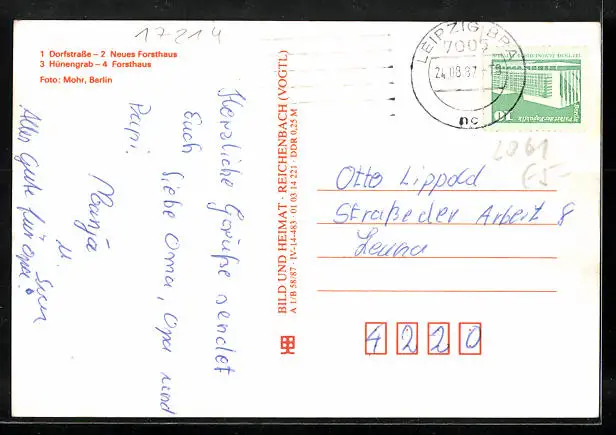 17214
1 Dorfstraße – 2 Neues Forsthaus
3 Hünengrab – 4 Forsthaus
Foto: Mohr, Berlin
Herzliche Grüße sendet
Euch liebe Oma, Opa und
Papi.
Manja
u. Sven
Alles Gute für Opa!
BILD UND HEIMAT · REICHENBACH (VOGTL)
A 1/B 58/87 · IV-14-483 · 01 03 14 221 · DDR 0,25 M
LEIPZIG BPA
7005
24.08.87
nc
10
Palast der Republik
Berlin
2061
£5-
Otto Lippold
Straße der Arbeit 8
Leuna
4220